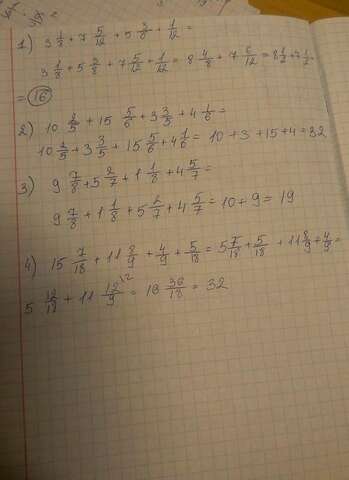 1) 3 1/8 + 7 5/12 + 5 3/8 + 1/12 =
3 1/8 + 5 3/8 + 7 5/12 + 1/12 = 8 4/8 + 7 6/12 = 8 1/2 + 7 1/2
= 16
2) 10 2/5 + 15 5/6 + 3 3/5 + 4 1/6 =
10 2/5 + 3 3/5 + 15 5/6 + 4 1/6 = 10 + 3 + 15 + 4 = 32
3) 9 7/8 + 5 2/7 + 1 1/8 + 4 5/7 =
9 7/8 + 1 1/8 + 5 2/7 + 4 5/7 = 10 + 9 = 19
4) 15 7/18 + 11 8/9 + 4/9 + 5/18 = 5 7/18 + 5/18 + 11 8/9 + 4/9 =
5 12/18 + 11 12/9 = 18 36/18 = 32